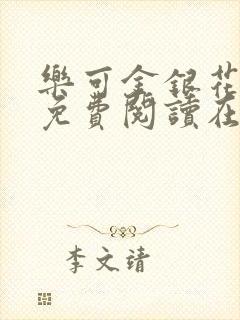 樂可金銀花
免費閱讀在
李文靖